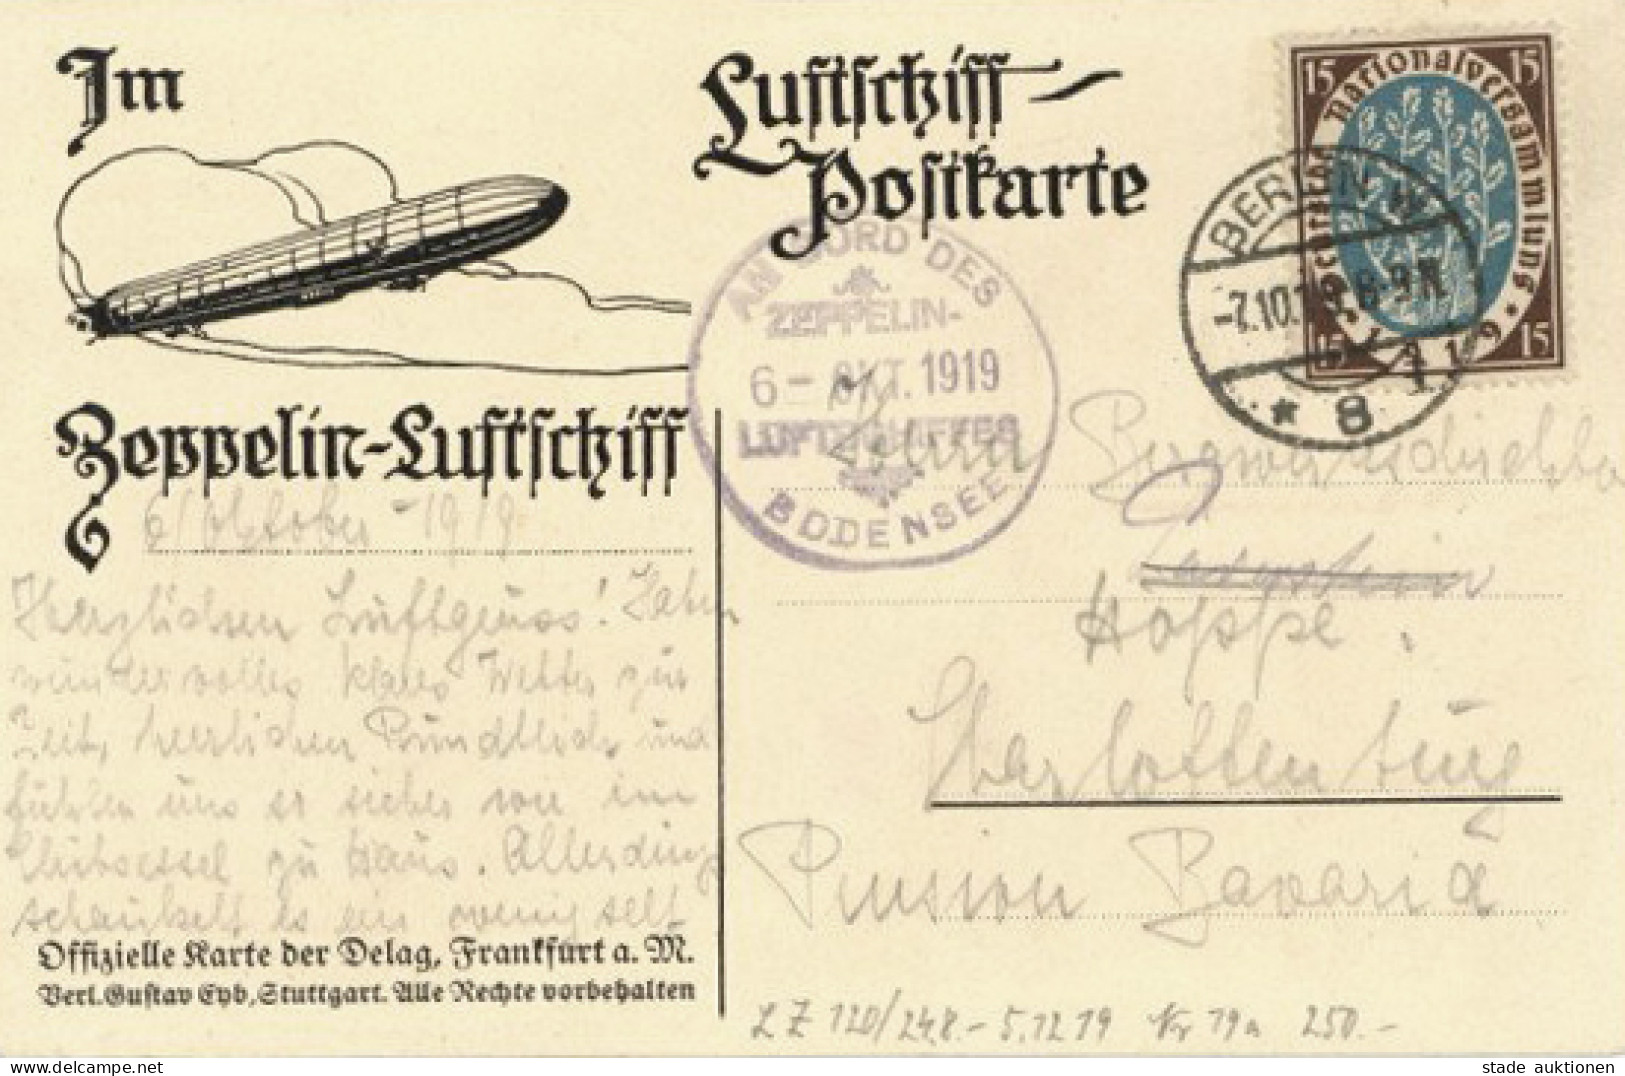 Im
Luftschiff-
Postkarte
Zeppelin-Luftschiff
15 15
Deutsche Nationalversammlung 1919
15 15
BERLIN W
-7.10.19.8-9N
* 8
AN BORD DES
ZEPPELIN-
6-OKT.1919
LUFTSCHIFFES
BODENSEE
6/Oktober-1919
Herzlichen Luftgruss! Haben
wundervolles klares Wetter zur
Zeit, herrlichen Rundblick und
fühlen uns so sicher wie im
Clubsessel zu Haus. Allerdings
schaukelt es ein wenig
Bergwerksdirektor
Hoppe.
Charlottenburg
Pension Bavaria
Offizielle Karte der Delag, Frankfurt a. M.
Verl. Gustav Eyb, Stuttgart. Alle Rechte vorbehalten
LZ 120/24.8.-5.12 19 Nr 19a 250.-
stade auktionen